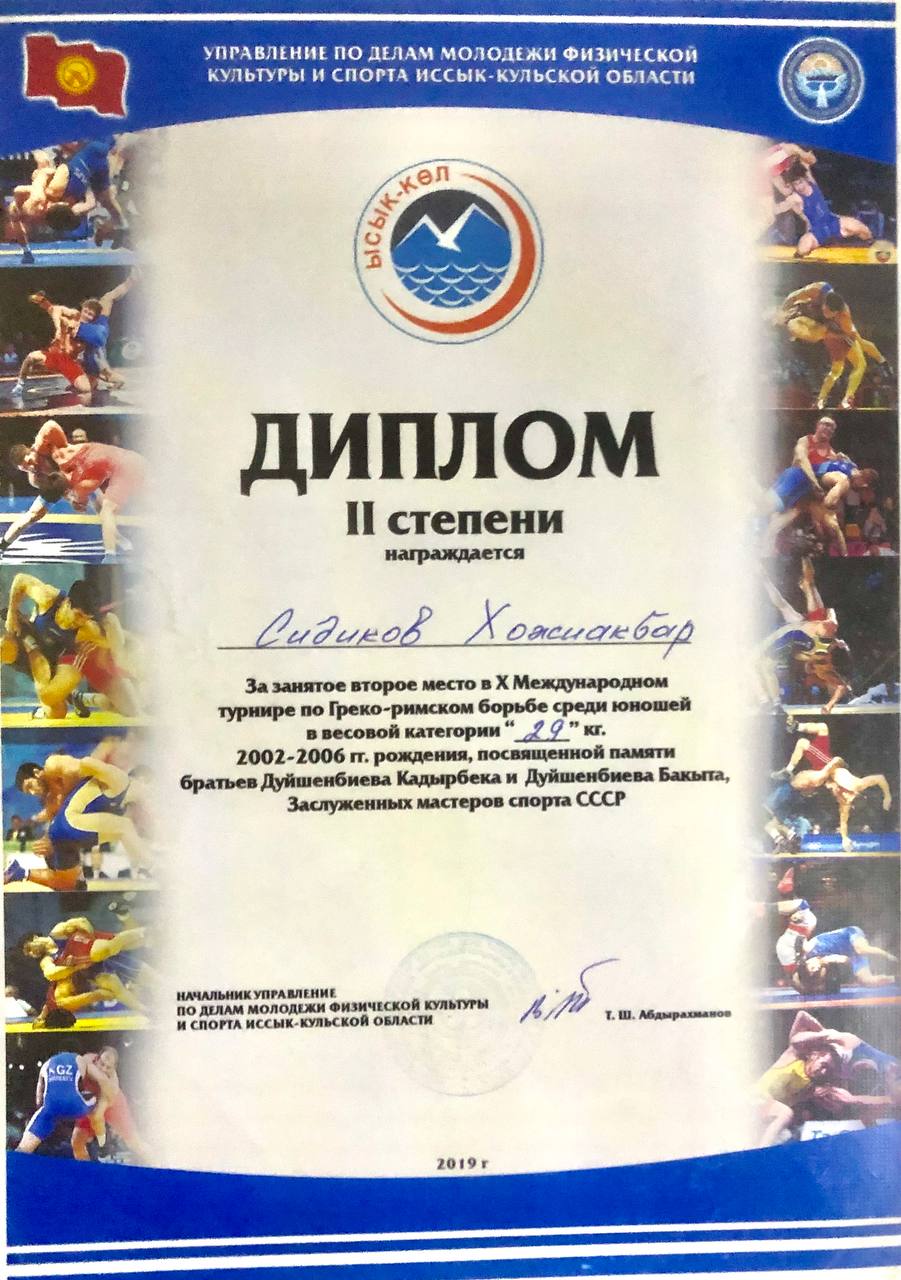 УПРАВЛЕНИЕ ПО ДЕЛАМ МОЛОДЕЖИ ФИЗИЧЕСКОЙ
КУЛЬТУРЫ И СПОРТА ИССЫК-КУЛЬСКОЙ ОБЛАСТИ
ЫСЫК-КӨЛ
ДИПЛОМ
II степени
награждается
Сидиков Хожиакбар
За занятое второе место в X Международном
турнире по Греко-римском борьбе среди юношей
в весовой категории “29” кг.
2002-2006 гг. рождения, посвященной памяти
братьев Дуйшенбиева Кадырбека и Дуйшенбиева Бакыта,
Заслуженных мастеров спорта СССР
НАЧАЛЬНИК УПРАВЛЕНИЕ
ПО ДЕЛАМ МОЛОДЕЖИ ФИЗИЧЕСКОЙ КУЛЬТУРЫ
И СПОРТА ИССЫК-КУЛЬСКОЙ ОБЛАСТИ
Т. Ш. Абдырахманов
KGZ
2019 г